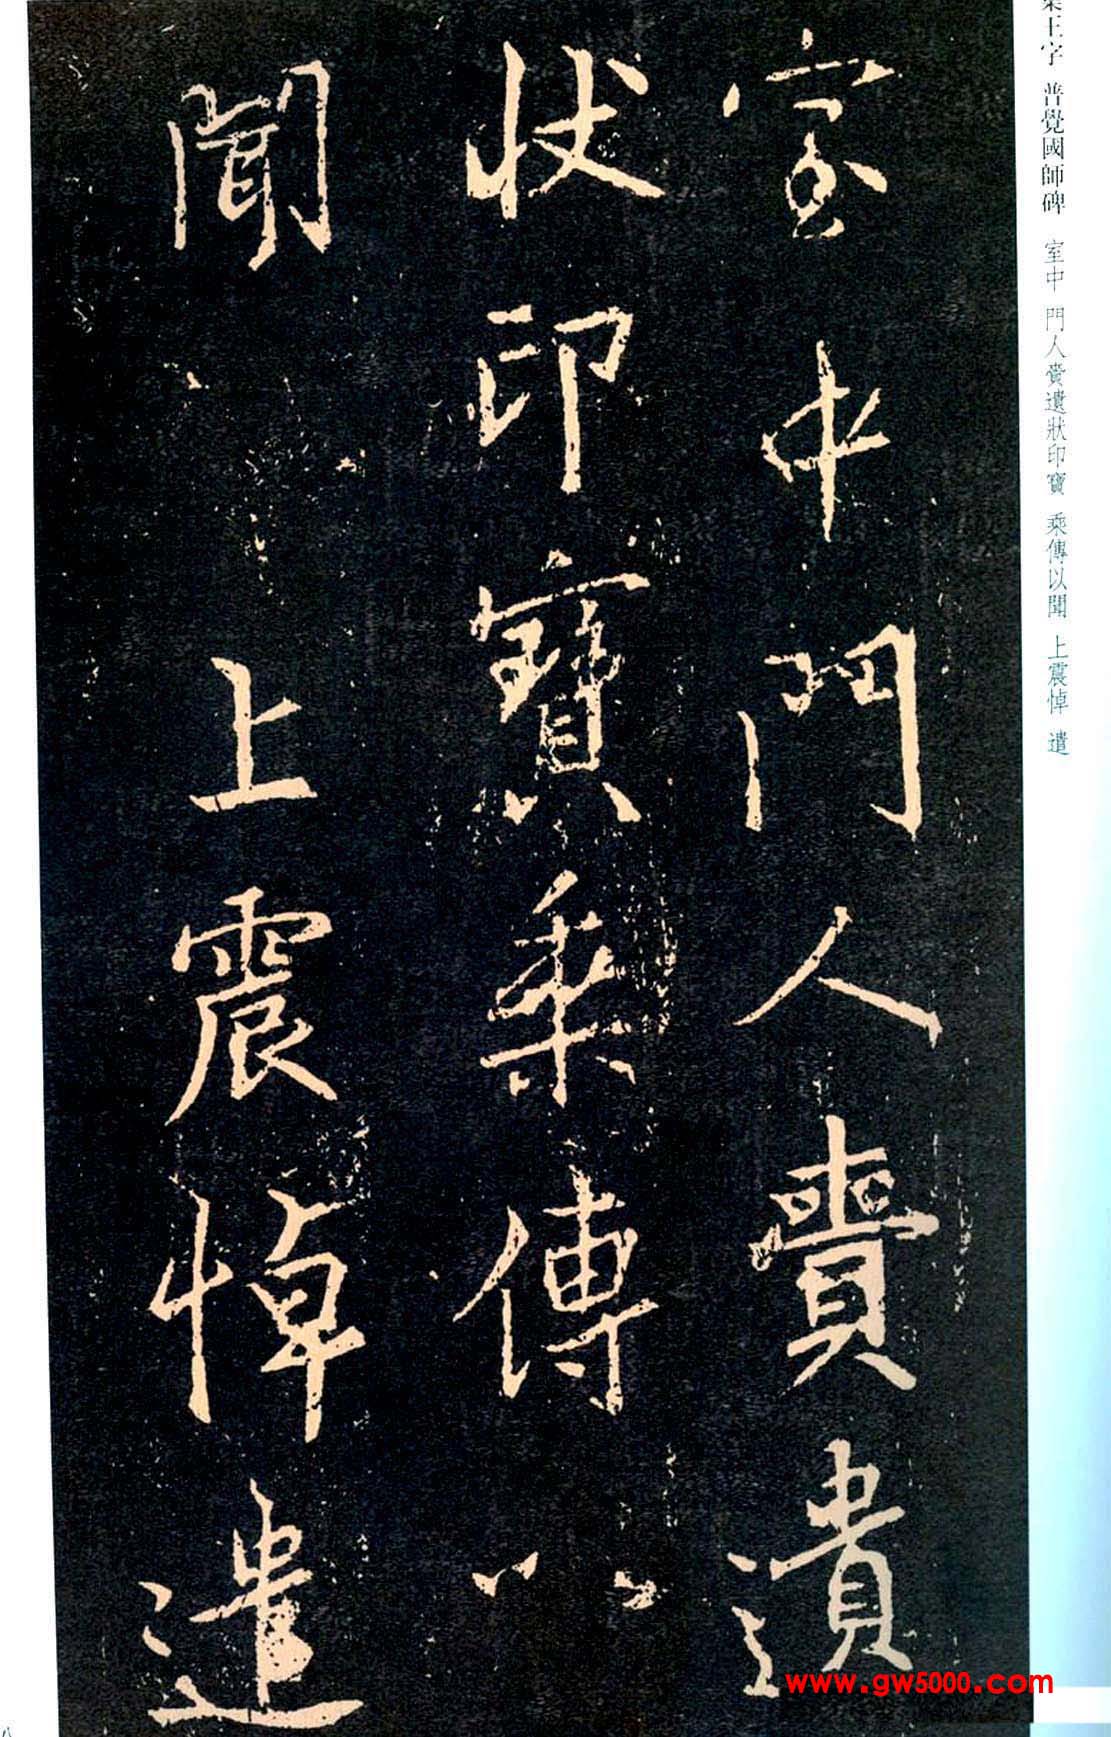 集王字 普覺國師碑 室中 門人賷遺狀印寶 乘傳以聞 上震悼 遣
室中門人賷遺
狀印寶乘傳以
聞 上震悼遣
八
www.gw5000.com